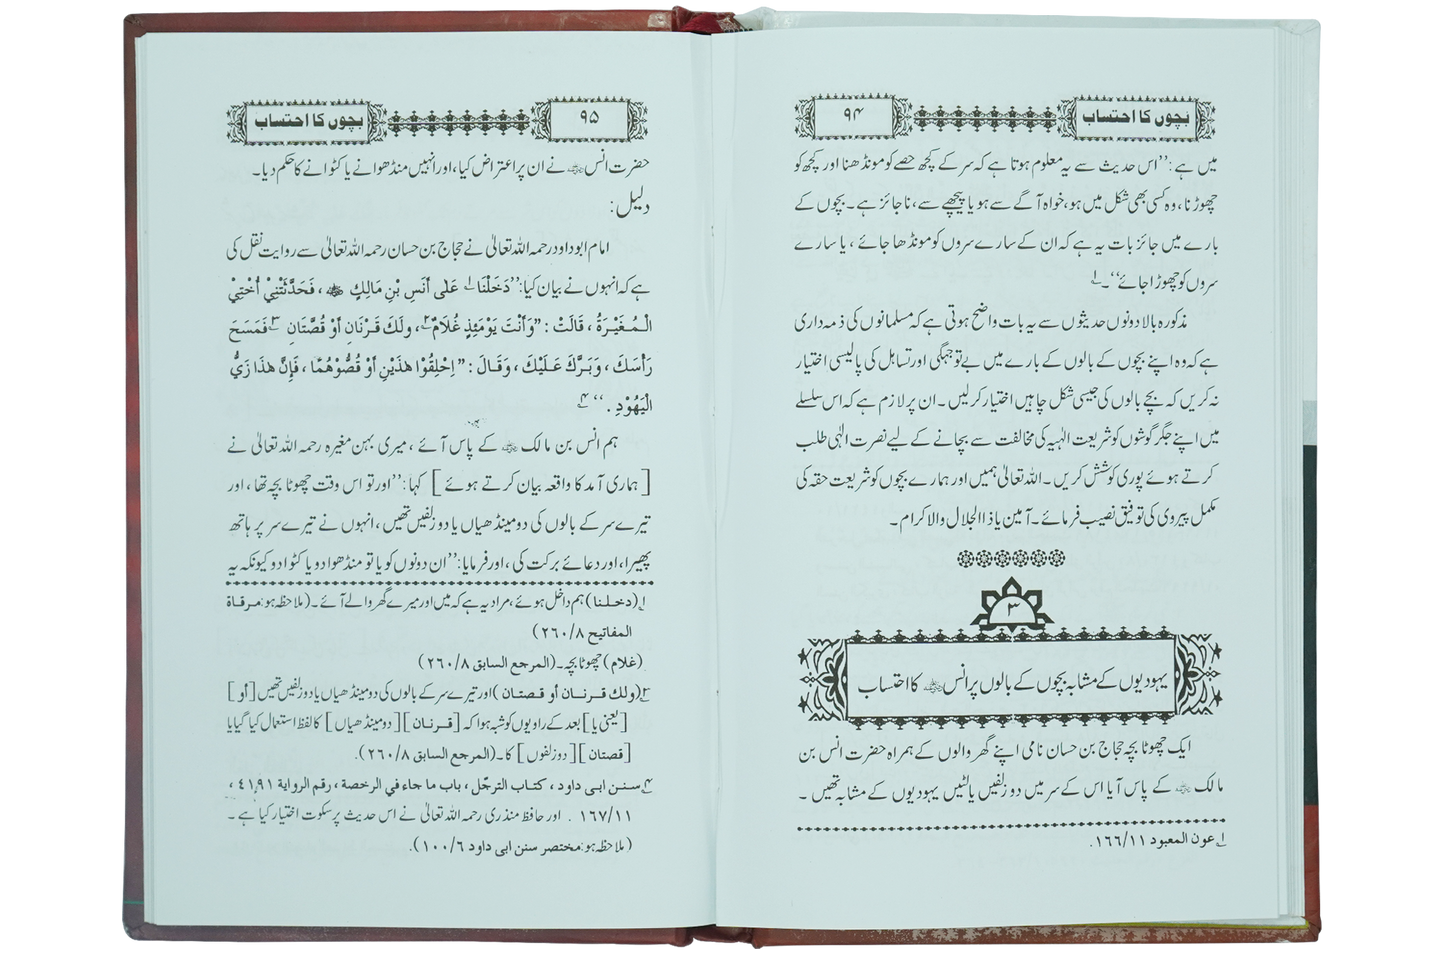 بچوں کا احتساب
۹۴
میں ہے: ’’اس حدیث سے یہ معلوم ہوتا ہے کہ سر کے کچھ حصے کو مونڈھنا اور کچھ کو
چھوڑنا، وہ کسی بھی شکل میں ہو، خواہ آگے سے ہو یا پیچھے سے، ناجائز ہے۔ بچوں کے
بارے میں جائز بات یہ ہے کہ ان کے سارے سروں کو مونڈھا جائے، یا سارے
سروں کو چھوڑا جائے‘‘۔ ۱
مذکورہ بالا دونوں حدیثوں سے یہ بات واضح ہوتی ہے کہ مسلمانوں کی ذمہ داری
ہے کہ وہ اپنے بچوں کے بالوں کے بارے میں بے توجہگی اور تساہل کی پالیسی اختیار
نہ کریں کہ بچے بالوں کی جیسی شکل چاہیں اختیار کر لیں۔ ان پر لازم ہے کہ اس سلسلے
میں اپنے جگر گوشوں کو شریعت الٰہیہ کی مخالفت سے بچانے کے لیے نصرت الٰہی طلب
کرتے ہوئے پوری کوشش کریں۔ اللہ تعالیٰ ہمیں اور ہمارے بچوں کو شریعت حقہ کی
مکمل پیروی کی توفیق نصیب فرمائے۔ آمین یا ذا الجلال والاکرام۔
۳
یہودیوں کے مشابہ بچوں کے بالوں پر انس رضی اللہ عنہ کا احتساب
ایک چھوٹا بچہ حجاج بن حسان نامی اپنے گھر والوں کے ہمراہ حضرت انس بن
مالک رضی اللہ عنہ کے پاس آیا اس کے سر میں دو زلفیں یا لٹیں یہودیوں کے مشابہ تھیں۔
۱ عون المعبود ۱۶۶/۱۱.
بچوں کا احتساب
۹۵
حضرت انس رضی اللہ عنہ نے ان پر اعتراض کیا، اور انہیں منڈھوانے یا کٹوانے کا حکم دیا۔
دلیل:
امام ابوداود رحمہ اللہ تعالیٰ نے حجاج بن حسان رحمہ اللہ تعالیٰ سے روایت نقل کی
ہے کہ انہوں نے بیان کیا: ’’دَخَلْنَا۱ عَلٰی أَنَسِ بْنِ مَالِكٍ رضی اللہ عنہ ، فَحَدَّثَتْنِيْ أُخْتِيْ
الْمُغَيْرَةُ ، قَالَتْ : ”وَأَنْتَ يَوْمَئِذٍ غُلَامٌ۲، ولَكَ قَرْنَانِ أَوْ قُصَّتَانِ ۳ فَمَسَحَ
رَأْسَكَ ، وَبَرَّكَ عَلَيْكَ ، وَقَالَ : ” اِحْلِقُوْا هٰذَيْنِ أَوْ قُصُّوْهُمَا ، فَإِنَّ هٰذَا زَيُّ
الْيَهُوْدِ . ‘‘ ۴
ہم انس بن مالک رضی اللہ عنہ کے پاس آئے، میری بہن مغیرہ رحمہ اللہ تعالیٰ نے
[ہماری آمد کا واقعہ بیان کرتے ہوئے] کہا: ’’اور تو اس وقت چھوٹا بچہ تھا، اور
تیرے سر کے بالوں کی دو مینڈھیاں یا دو زلفیں تھیں، انہوں نے تیرے سر پر ہاتھ
پھیرا، اور دعائے برکت کی، اور فرمایا: ’’ان دونوں کو یا تو منڈھوا دو یا کٹوا دو کیونکہ یہ
۱ (دخلنا) ہم داخل ہوئے، مراد یہ ہے کہ میں اور میرے گھر والے آئے۔ (ملاحظہ ہو: مرقاة
المفاتيح ۲۶۰/۸)
(غلام) چھوٹا بچہ۔ (المرجع السابق ۲۶۰/۸)
۳ (ولك قرنان أو قصتان) اور تیرے سر کے بالوں کی دو مینڈھیاں یا دو زلفیں تھیں [أو]
[یعنی یا] بعد کے راویوں کو شبہ ہوا کہ [قرنان] [دو مینڈھیاں] کا لفظ استعمال کیا گیا یا
[قصتان] [دو زلفوں] کا۔ (المرجع السابق ۲۶۰/۸).
۴ سنن ابی داود ، کتاب الترجّل ، باب ما جاء في الرخصة ، رقم الرواية ۴۱۹۱ ،
۱۶۷/۱۱ . اور حافظ منذری رحمہ اللہ تعالیٰ نے اس حدیث پر سکوت اختیار کیا ہے۔
(ملاحظہ ہو: مختصر سنن ابی داود ۱۰۰/۶).